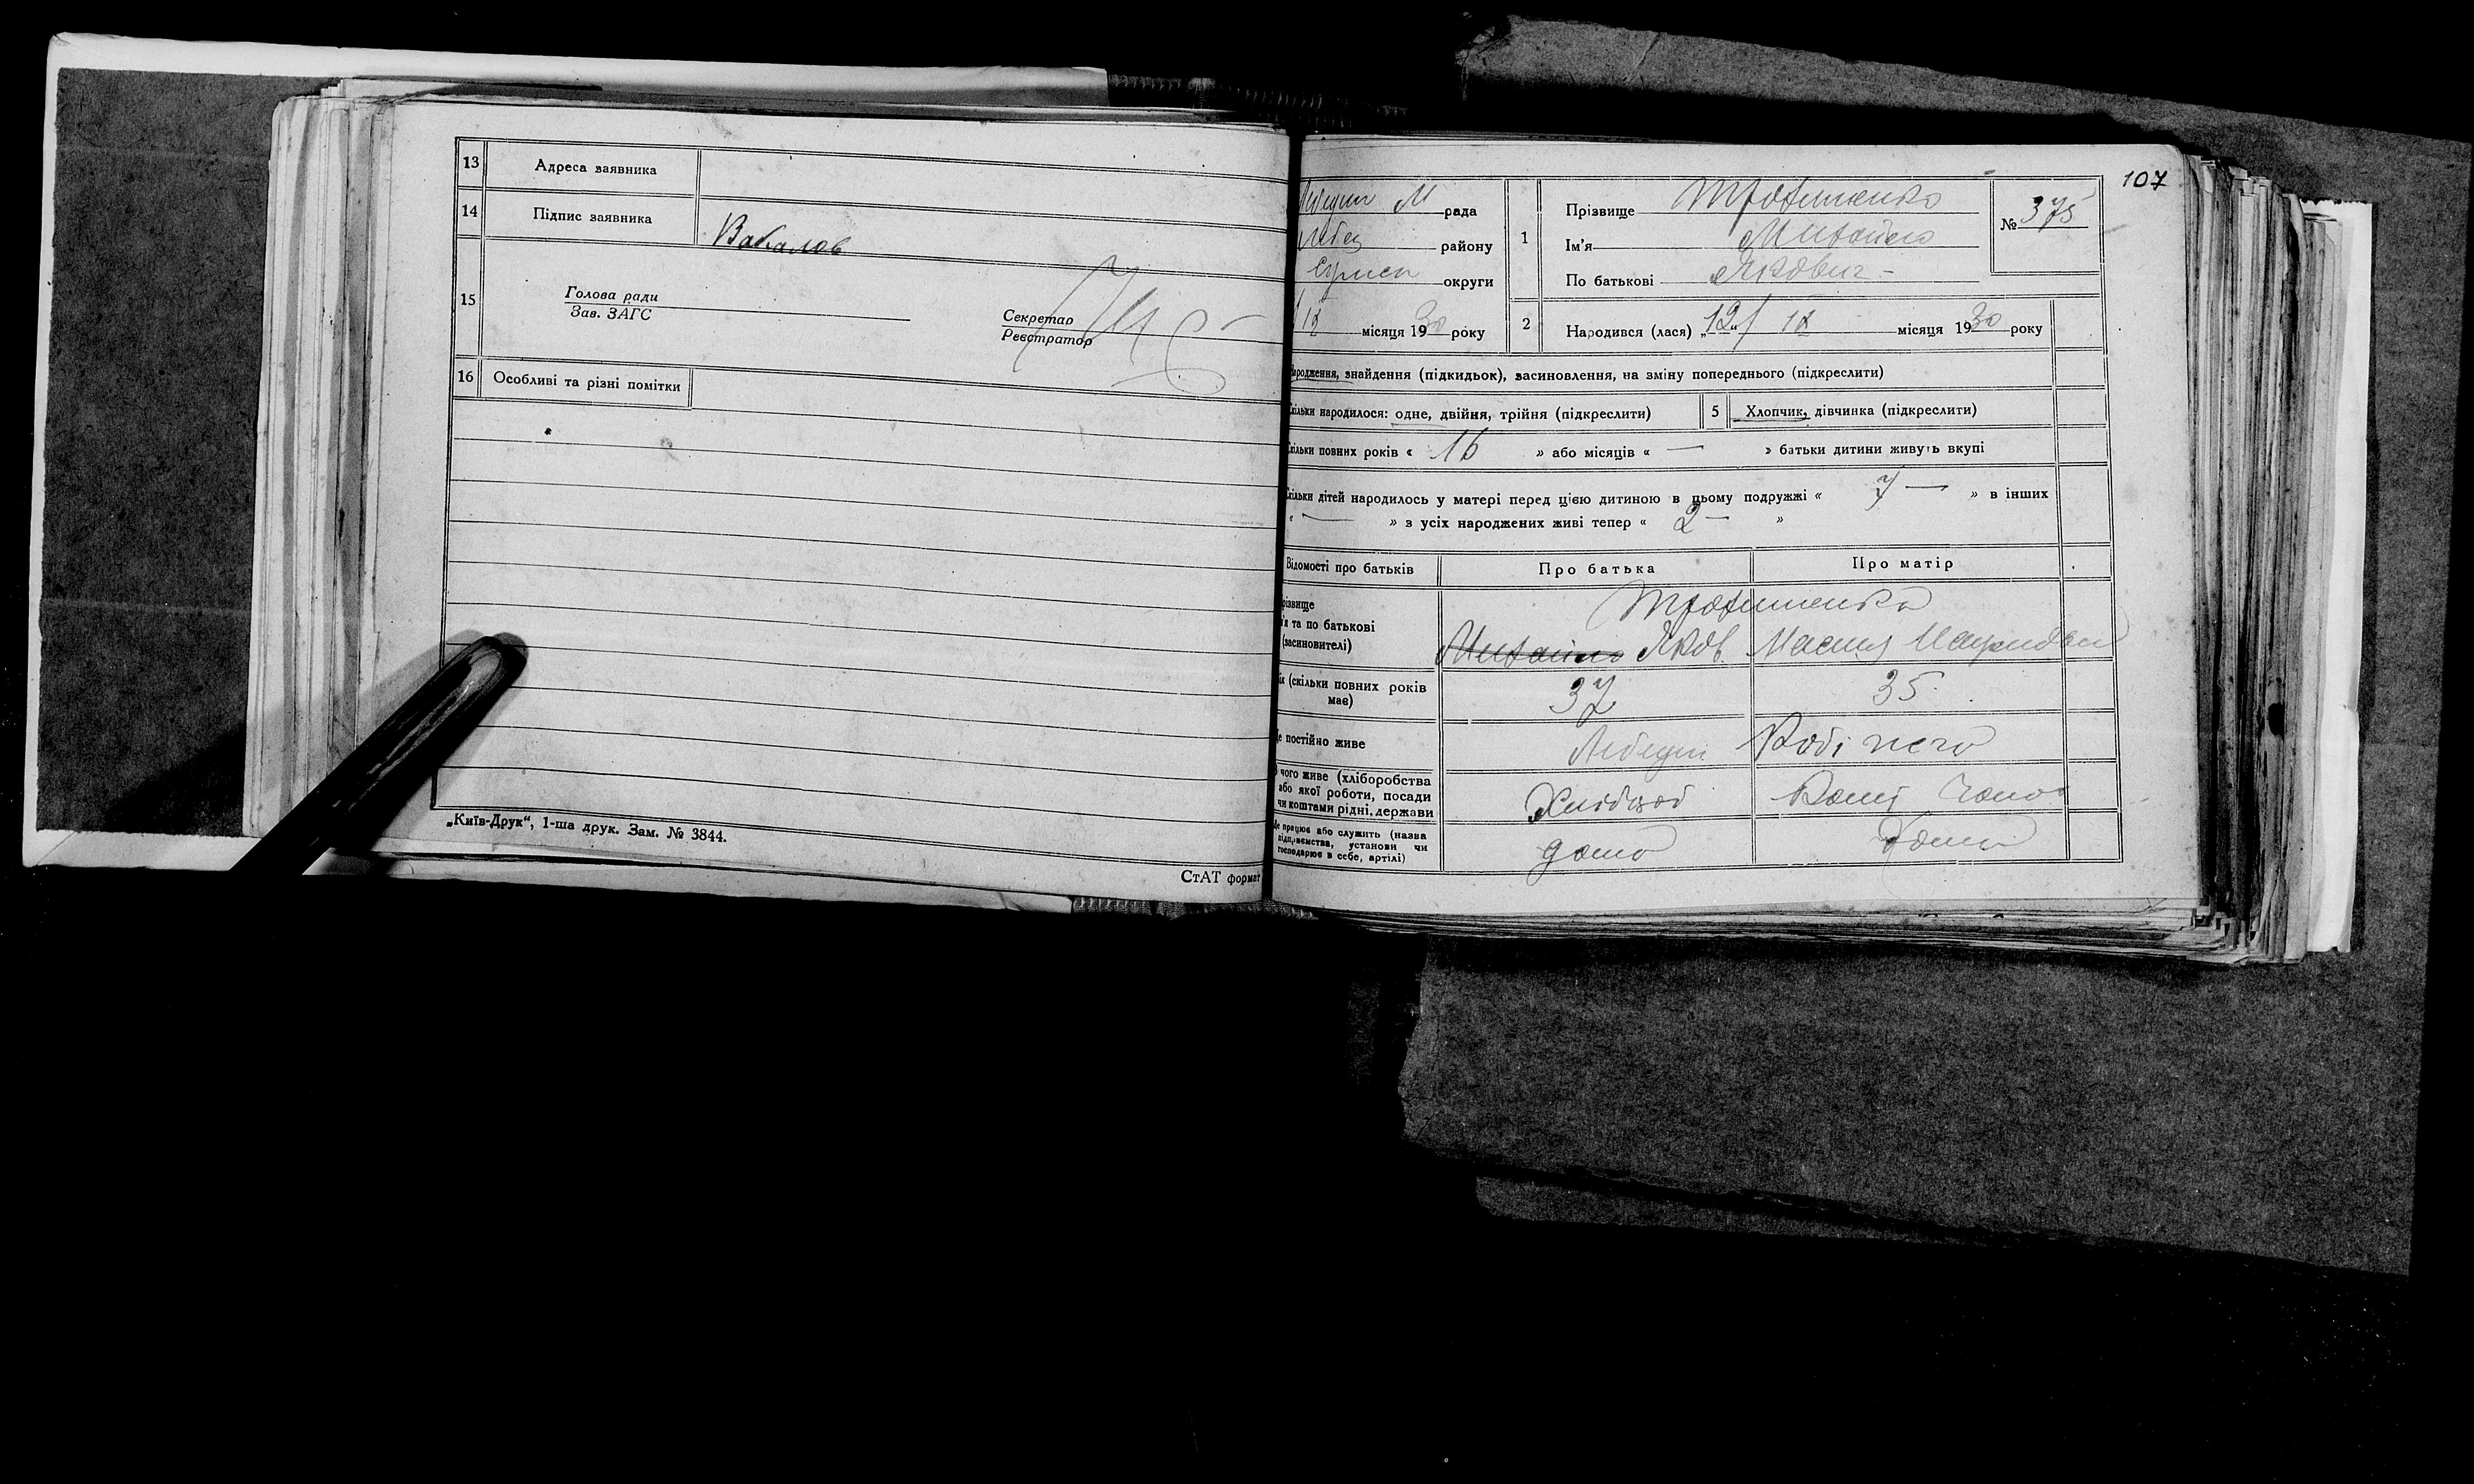 13 Адреса заявника
14 Підпис заявника
15 Голова ради
Зав. ЗАГС
Секретар
Реєстратор
16 Особливі та різні помітки
„Київ-Друк“, 1-ша друк. Зам. № 3844.
СтАТ формат
107
М рада
району
округи
місяця 1930 року
1 Прізвище
Ім'я
По батькові Якович -
№ 375
2 Народився (лася) „12“ місяця 1930 року
народження, знайдення (підкидьок), засиновлення, на зміну попереднього (підкреслити)
кільки народилося: одне, двійня, трійня (підкреслити)
5 Хлопчик, дівчинка (підкреслити)
кільки повних років « 16 » або місяців « — » батьки дитини живуть вкупі
кільки дітей народилось у матері перед цією дитиною в цьому подружжі « 7 — » в інших
« — » з усіх народжених живі тепер « 2 — »
Відомості про батьків
Про батька
Про матір
різвище
м'я та по батькові
(засиновителі)
Яков
ік (скільки повних років
має)
37
35
е постійно живе
чого живе (хліборобства
або якої роботи, посади
чи коштами рідні, держави
Хлібороб
Де працює або служить (назва
підприємства, установи чи
господарює в себе, артілі)
дома
дома